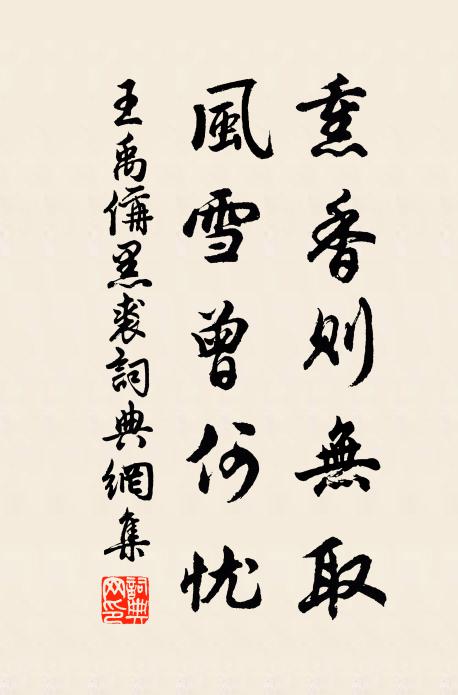 熏香則無取
風雪曾何忧
王禹偁黑裘詞典網集
詞典网印